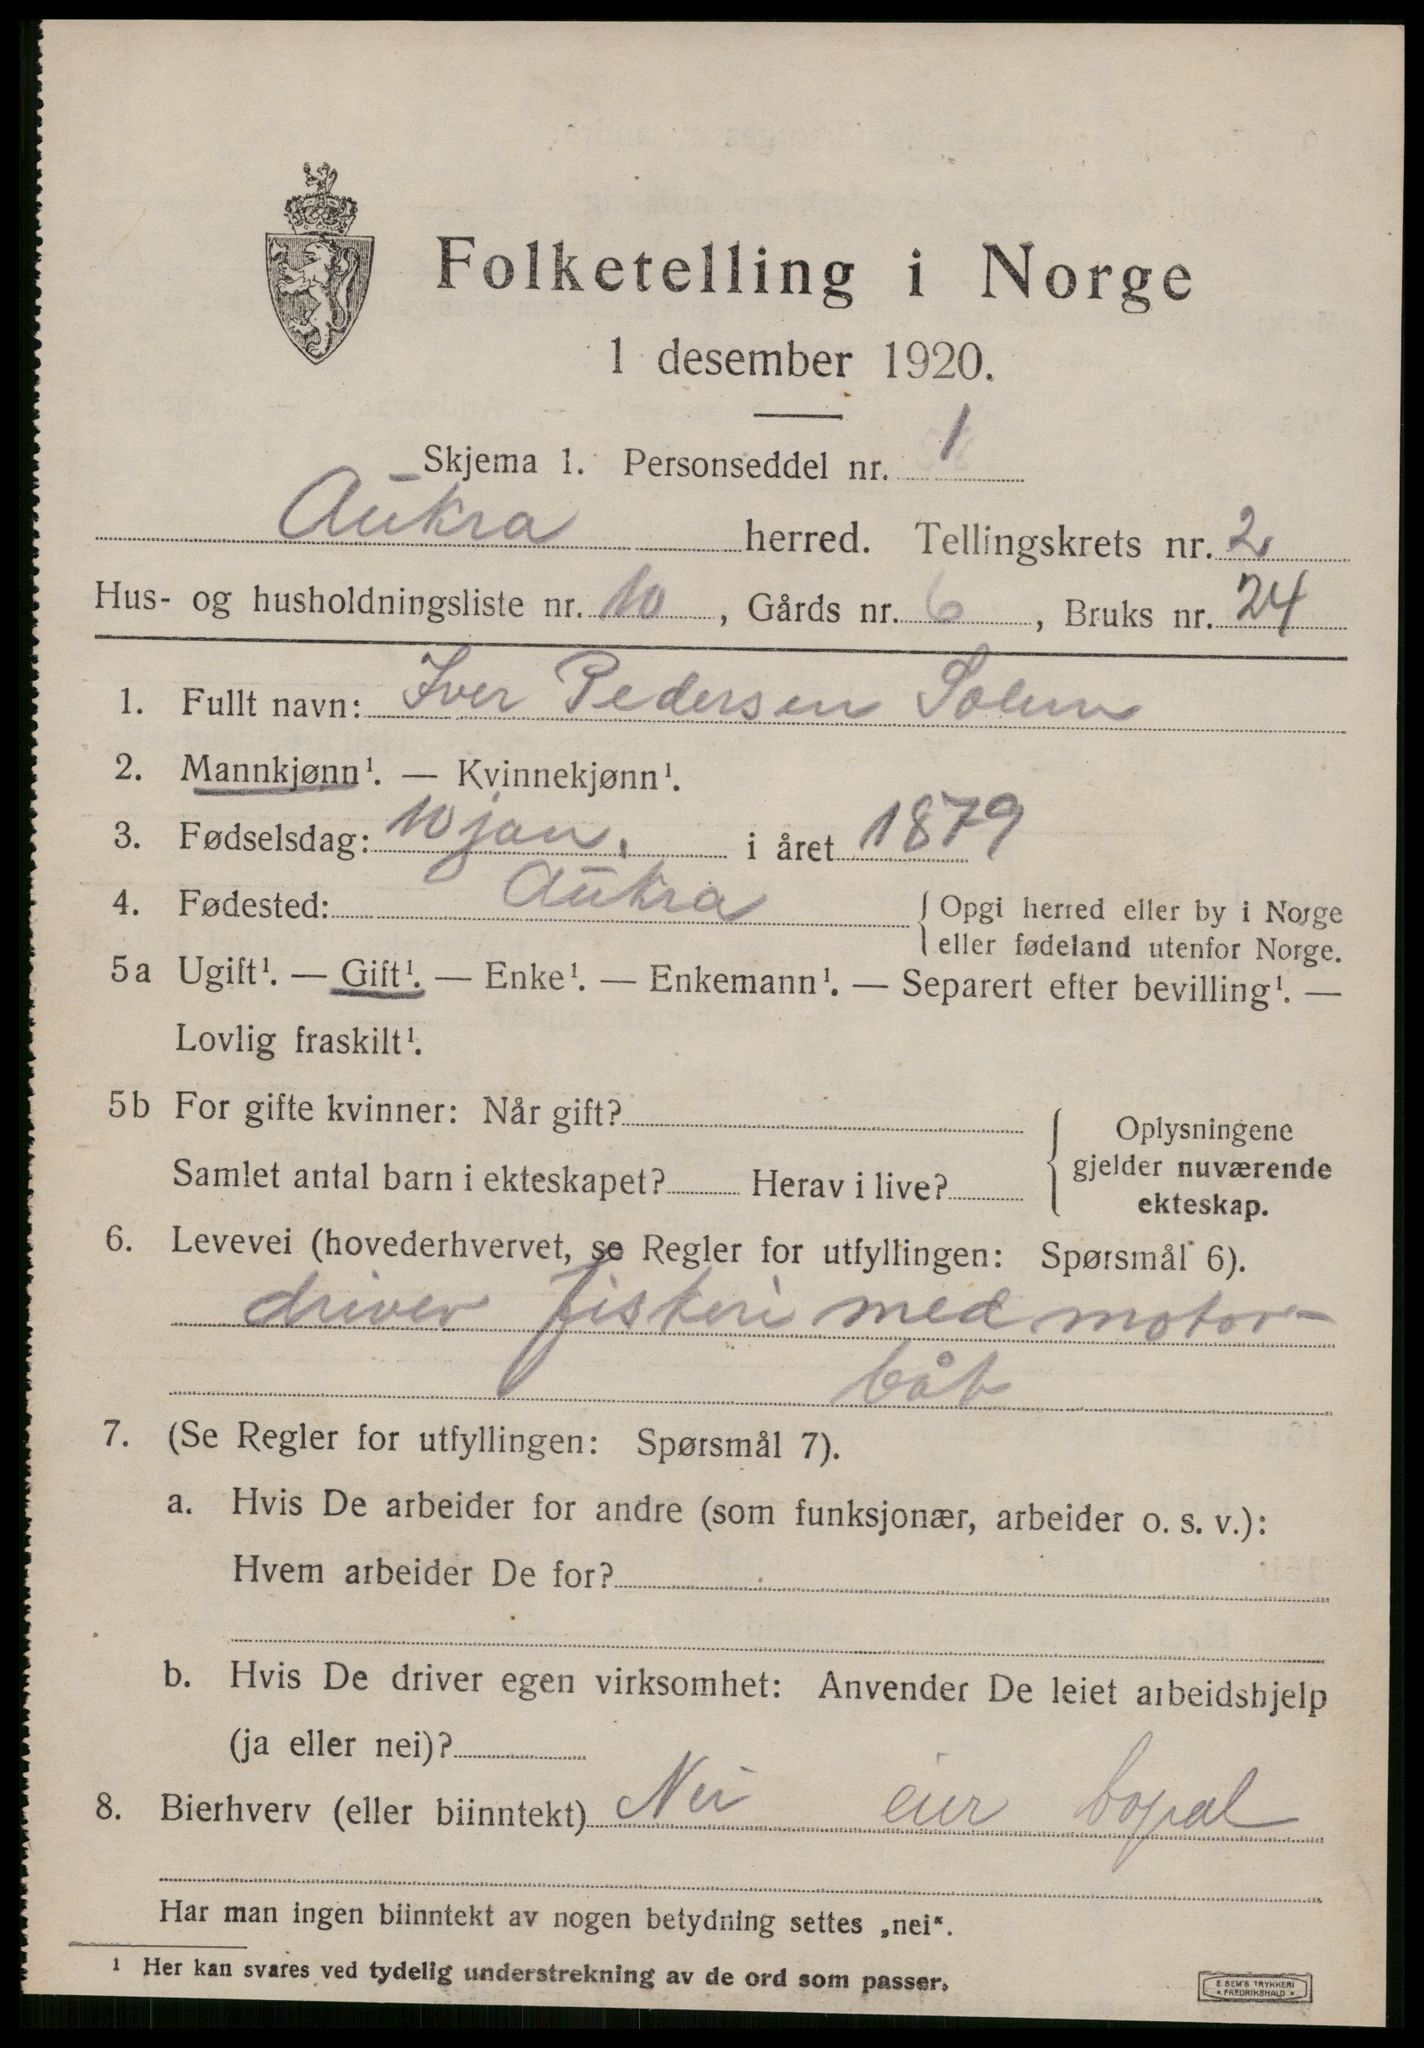 Folketelling i Norge
1 desember 1920.
Skjema 1. Personseddel nr. 1
Aukra herred. Tellingskrets nr. 2
Hus- og husholdningsliste nr. 10, Gårds nr. 6, Bruks nr. 24
1. Fullt navn: Iver Pedersen Solem
2. Mannkjønn¹. — Kvinnekjønn¹.
3. Fødselsdag: 10 jan. i året 1879
4. Fødested: Aukra { Opgi herred eller by i Norge
eller fødeland utenfor Norge.
5a Ugift¹. — Gift¹. — Enke¹. — Enkemann¹. — Separert efter bevilling¹. —
Lovlig fraskilt¹.
5b For gifte kvinner: Når gift?
Samlet antal barn i ekteskapet? Herav i live?
{ Oplysningene
gjelder nuværende
ekteskap.
6. Levevei (hovederhvervet, se Regler for utfyllingen: Spørsmål 6).
driver fiskeri med motor-
båt
7. (Se Regler for utfyllingen: Spørsmål 7).
a. Hvis De arbeider for andre (som funksjonær, arbeider o. s. v.):
Hvem arbeider De for?
b. Hvis De driver egen virksomhet: Anvender De leiet arbeidshjelp
(ja eller nei)?
8. Bierhverv (eller biinntekt) Nei eier bopal
Har man ingen biinntekt av nogen betydning settes „nei“.
¹ Her kan svares ved tydelig understrekning av de ord som passer.
E. SEM'S TRYKKERI
* FREDRIKSHALD *